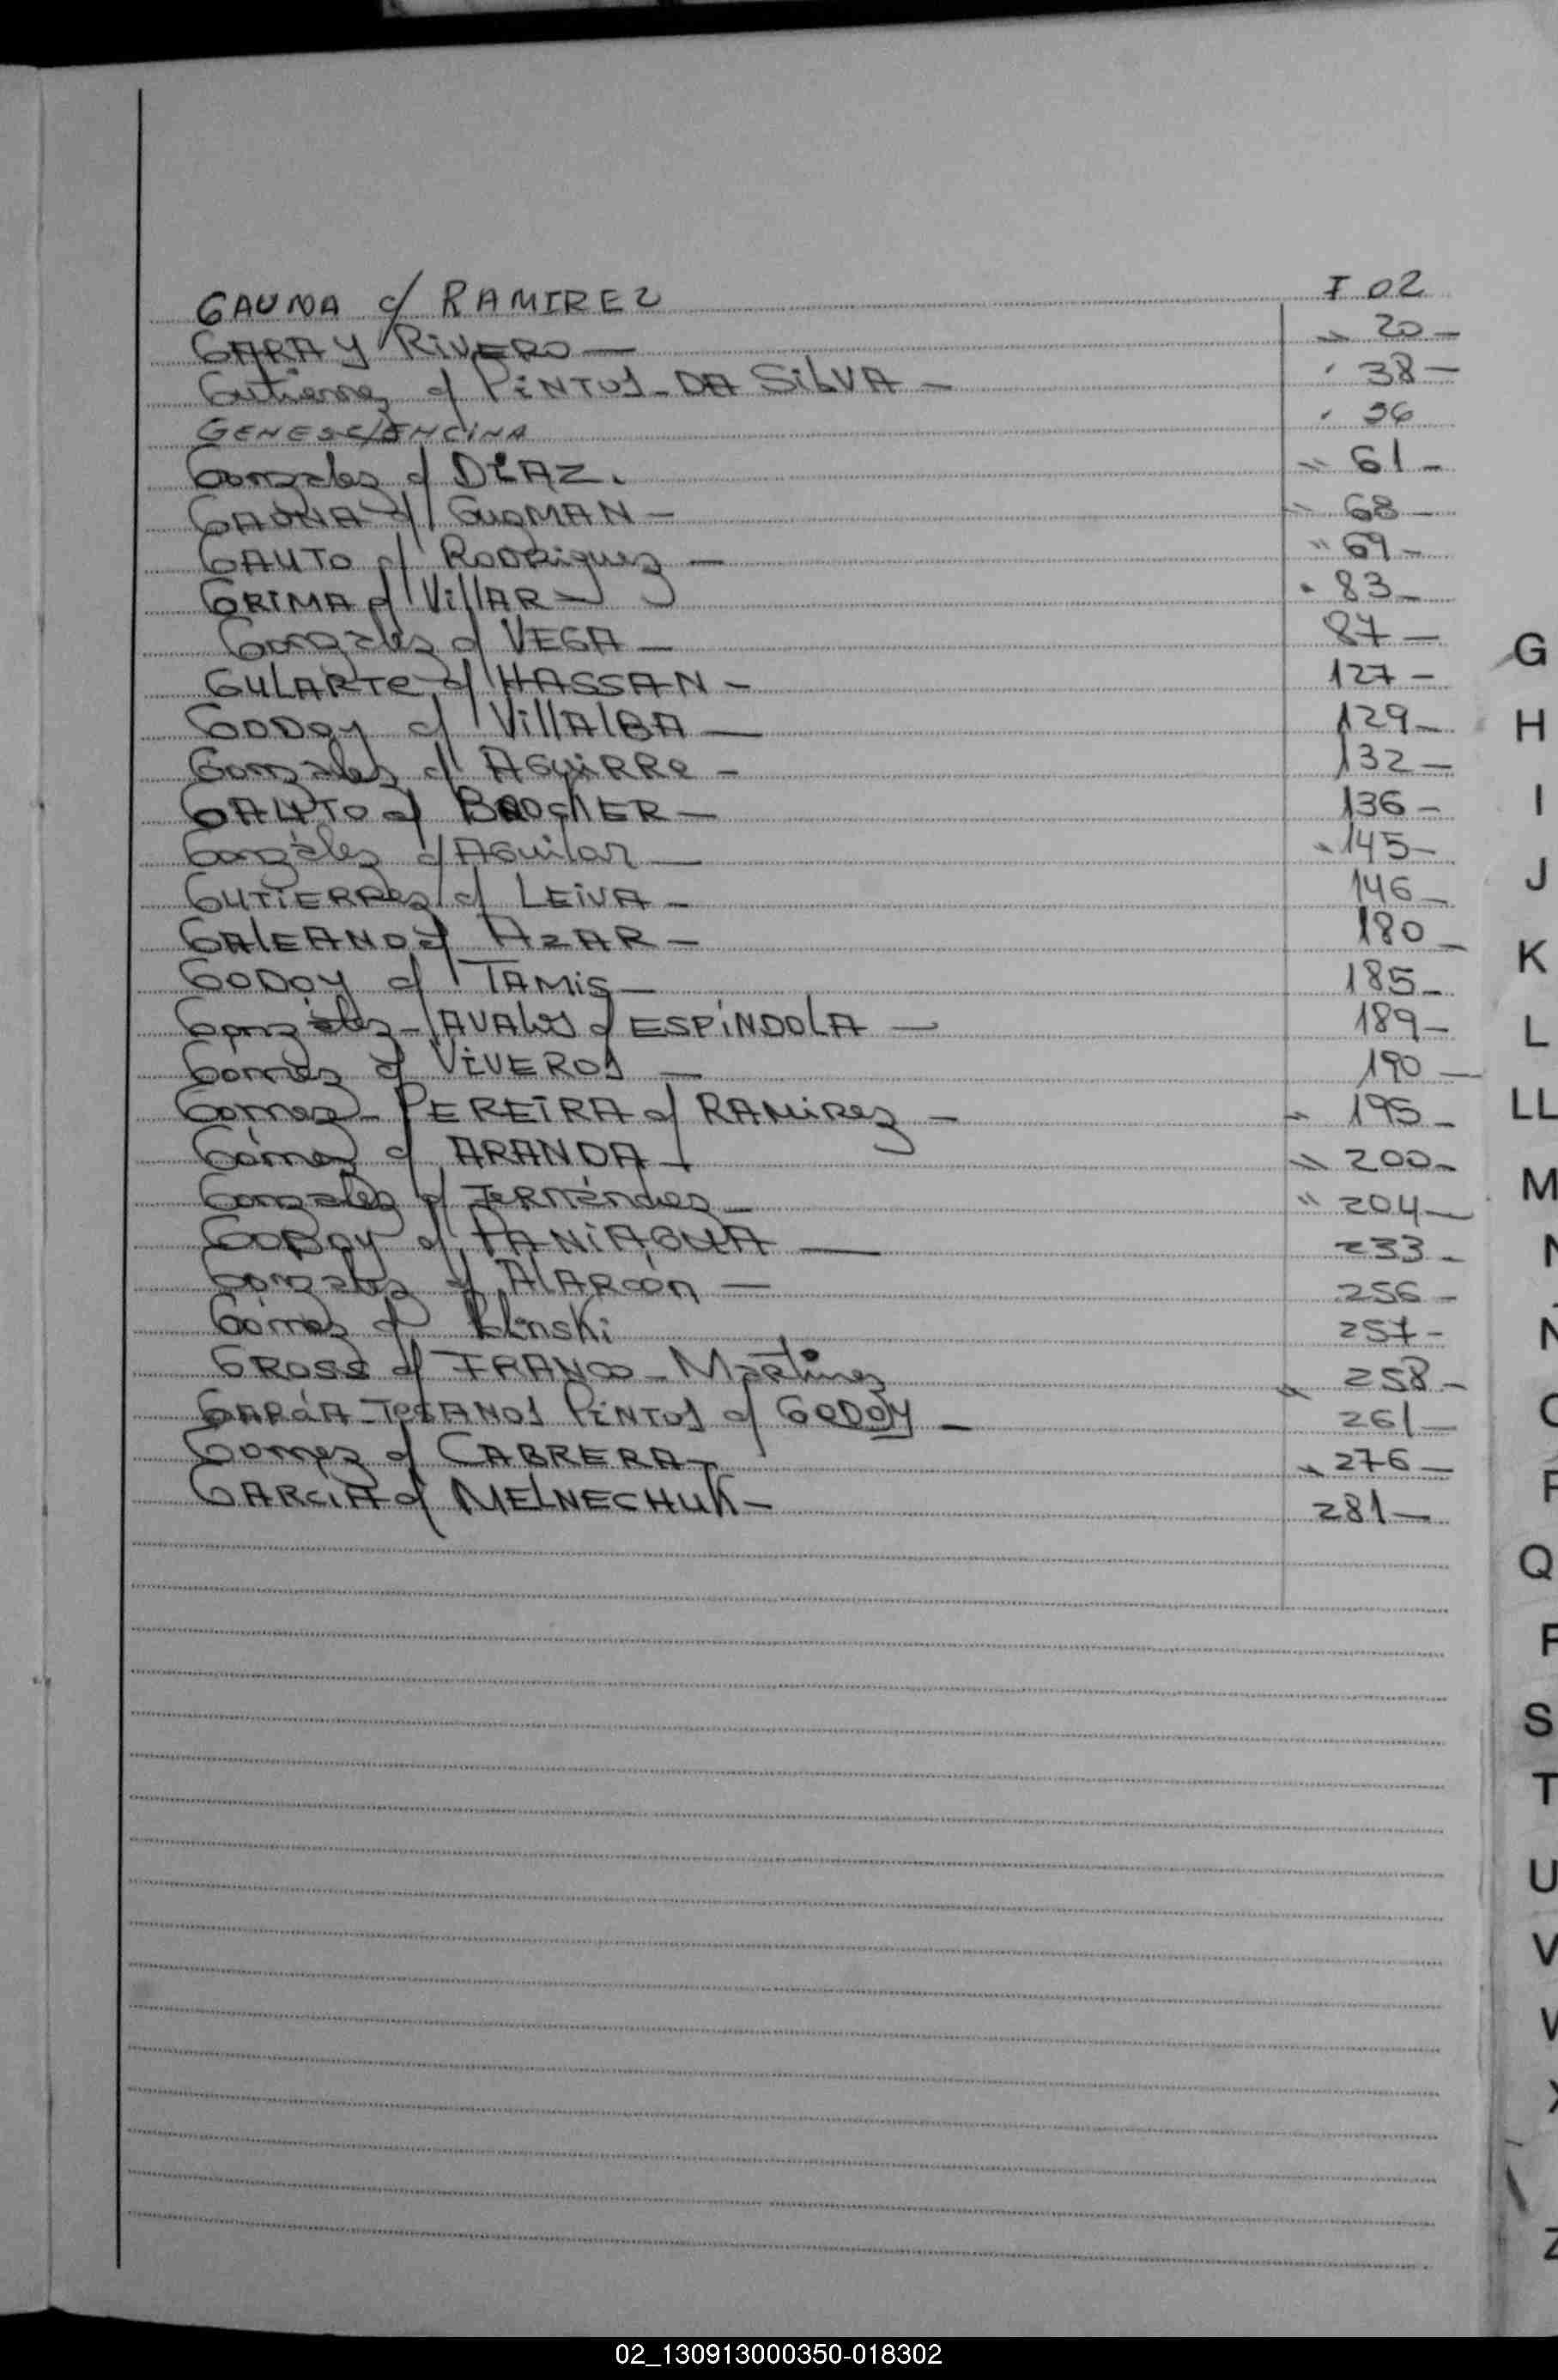 GAUNA c/ RAMIREZ F 02
GARAY RIVERO — " 20 —
Gutierrez c/ PINTOS - DA SILVA — " 38 —
GENES C/ ENCINA " 56
Gonzalez c/ DIAZ. " 61 —
GAONA c/ GuzMAN — " 68 —
GAUTO c/ RODRiguez — " 69 —
GRIMA c/ VillAR — " 83 —
Gonzalez c/ VEGA — 87 —
GULARTe c/ HASSAN — 127 —
GODOy c/ VillAlBA — 129 —
Gonzalez c/ AGUiRRe — 132 —
GAUTO c/ — 136 —
González c/ AGuilar — " 145 —
GUTIERRez c/ LEiVA — 146 —
GAlEANO c/ AzAR — 180 —
GODOY c/ TAMIS — 185 —
González - AVAlos c/ ESPíNDOLA — 189 —
Gomez c/ ViVEROS — 190 —
Gomez - PEREIRA c/ RAMiRez — " 195 —
Gómez c/ ARANDA — " 200 —
Gonzalez c/ FeRNández — " 204 —
GODOY c/ PANiAGUA — 233 —
Gonzalez c/ AlARcón — 256 —
Gómez c/ 257 —
GROSS c/ FRANCO - Martinez " 258 —
GARcíA - TeZANOS PiNTOS c/ GODOY — 261 —
Gomez c/ CABRERA — " 276 —
GARCíA c/ MELNECHUK — 281 —
G
H
I
J
K
L
LL
M
N
Ñ
O
P
Q
R
S
T
U
V
W
X
Z
02_130913000350-018302